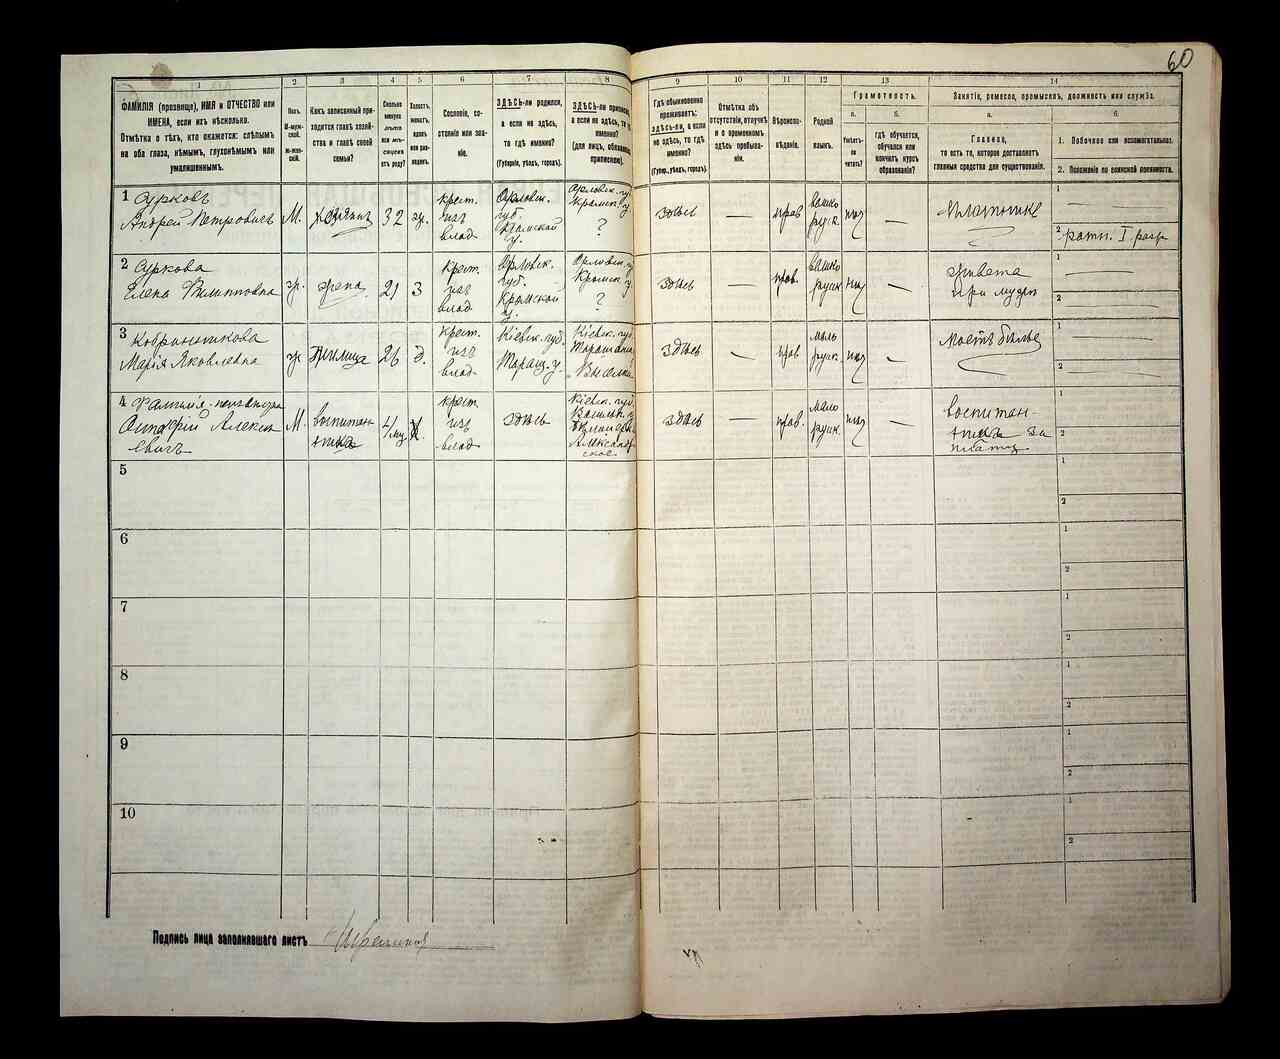 60
1
2
3
4
5
6
7
8
9
10
11
12
13
14
ФАМИЛІЯ (прозвище), ИМЯ и ОТЧЕСТВО или
ИМЕНА, если ихъ нѣсколько.
Отмѣтка о тѣхъ, кто окажется: слѣпымъ
на оба глаза, нѣмымъ, глухонѣмымъ или
умалишеннымъ.
Полъ.
М-муж-
ской.
Ж-жен-
скій.
Какъ записанный при-
ходится главѣ хозяй-
ства и главѣ своей
семьи?
Сколько
минуло
лѣтъ
или мѣ-
сяцевъ
отъ роду?
Холостъ,
женатъ,
вдовъ
или раз-
веденъ.
Сословіе, со-
стояніе или зва-
ніе.
ЗДѢСЬ-ли родился,
а если не здѣсь,
то гдѣ именно?
(Губернія, уѣздъ, городъ).
ЗДѢСЬ-ли приписанъ,
а если не здѣсь, то гдѣ
именно?
(для лицъ, обязанныхъ
припискою).
Гдѣ обыкновенно
проживаетъ:
здѣсь-ли, а если
не здѣсь, то гдѣ
именно?
(Губер., уѣздъ, городъ).
Отмѣтка объ
отсутствіи, отлучкѣ
и о временномъ
здѣсь пребыва-
ніи.
Вѣроиспо-
вѣданіе.
Родной
языкъ.
Грамотность.
а.
б.
Умѣетъ-
ли
читать?
гдѣ обучается,
обучался или
кончилъ курсъ
образованія?
Занятіе, ремесло, промыселъ, должность или служба.
а.
б.
Главное,
то есть то, которое доставляетъ
главныя средства для существованія.
1. Побочное или вспомогательное.
2. Положеніе по воинской повинности.
1 Сурковъ
Андрей Петровичъ
М. хозяинъ 32 ж.
крест.
изъ
влад.
Орловск.
губ.
Крымской
у.
Орловск. губ.
Кромск. у.
?
здѣсь — прав
велико
русск.
—
1 —
2 ратн. I разр
2 Суркова
Елена Филипповна
ж. жена 21 З
крест.
изъ
влад.
Орловск.
губ.
Крымской
у.
Орловск.
Кромск. у.
?
здѣсь — прав.
велико
русск
—
живетъ
при мужѣ
1 —
2 —
3
Марія Яковлевна
ж. 26 д.
крест.
изъ
влад.
Кіевск. губ.
Таращ. у.
Кіевск. губ.
здѣсь — прав
мало
русск.
—
Моетъ бѣлье
1 —
2 —
4 Фамилія неизвѣстна
М. воспитан-
никъ
4/мц. Х.
крест.
изъ
влад.
здѣсь
Кіевск. губ.
Александров-
ское
здѣсь — прав.
мало
русск.
—
воспитан-
никъ за
плату
1
2
5
1
2
6
1
2
7
1
2
8
1
2
9
1
2
10
1
2
Подпись лица заполнявшаго листъ